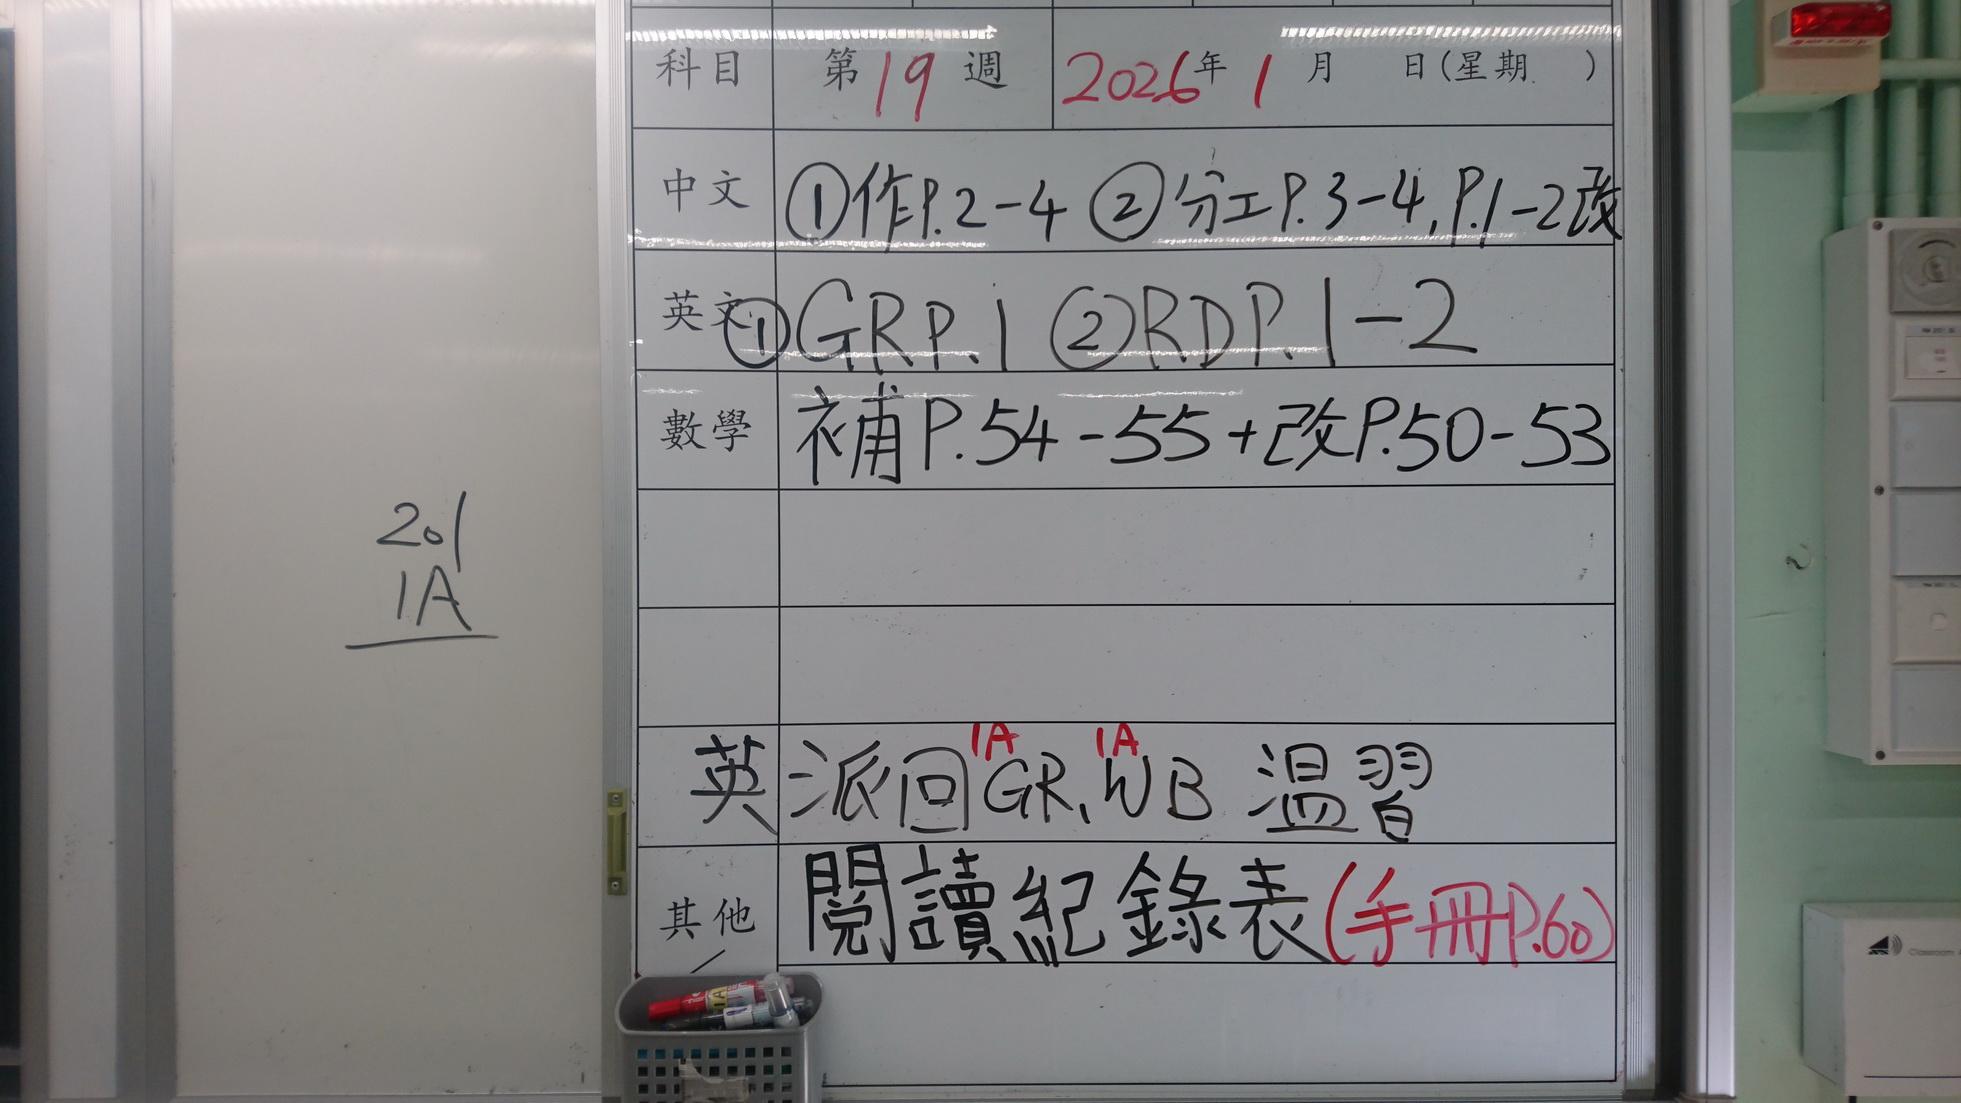 科目 第19週 2026年1月 日(星期 )
中文 ①作P.2-4 ②分工P.3-4,P.1-2改
英文 ①GRP.1 ②RDP.1-2
數學 補P.54-55+改P.50-53
201
1A
1A 1A
英 派回GR,WB 溫習
其他 閱讀紀錄表(手冊P.60)